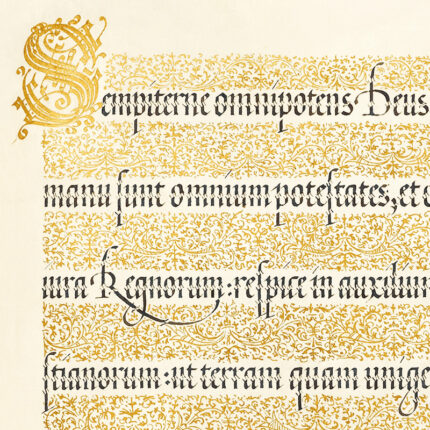 Sempiterne omnipotens Deus
manu ſunt omnium poteſtates, et o
iura Regnorum: reſpice in auxilium
ſtianorum: ut terram quam unige